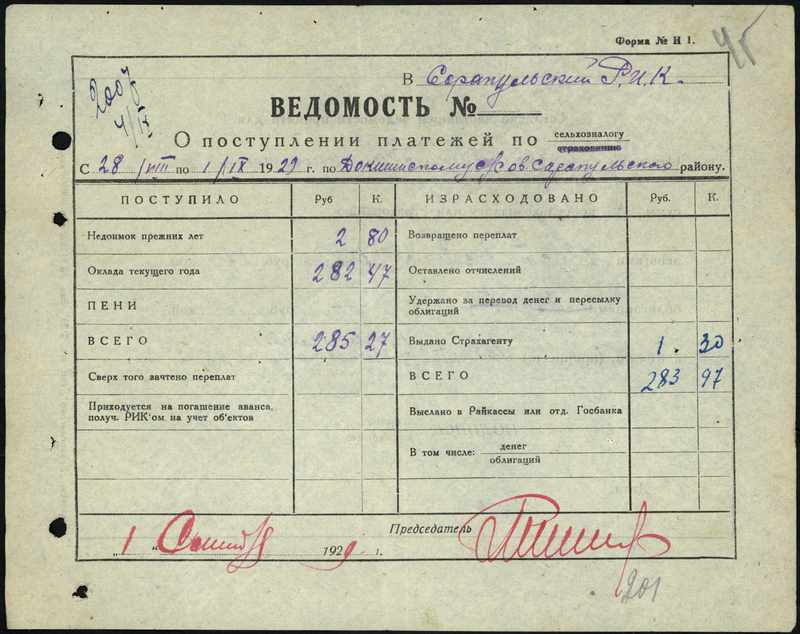 Форма № Н 1.
45
2007
4/IX
В Сарапульский Р.И.К.
ВЕДОМОСТЬ №
О поступлении платежей по сельхозналогу
страхованию
С 28/VIII по 1/IX 1929 г. по Сарапульского району.
ПОСТУПИЛО Руб К. ИЗРАСХОДОВАНО Руб. К.
Недоимок прежних лет 2 80 Возвращено переплат
Оклада текущего года 282 47 Оставлено отчислений
ПЕНИ Удержано за перевод денег и пересылку
облигаций
ВСЕГО 285 27 Выдано Страхагенту 1. 30
Сверх того зачтено переплат ВСЕГО 283 97
Приходуется на погашение аванса,
получ. РИК'ом на учет об'ектов Выслано в Райкассы или отд. Госбанка
В том числе: денег
облигаций
Председатель
„1" Сентября 1929 г.
201